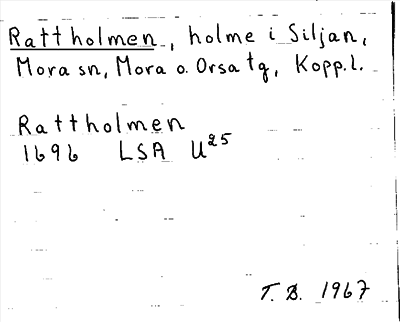 Rattholmen, holme i Siljan,
Mora sn, Mora o. Orsa tg, Kopp.l.
Rattholmen
1696 LSA U25
T. B. 1967